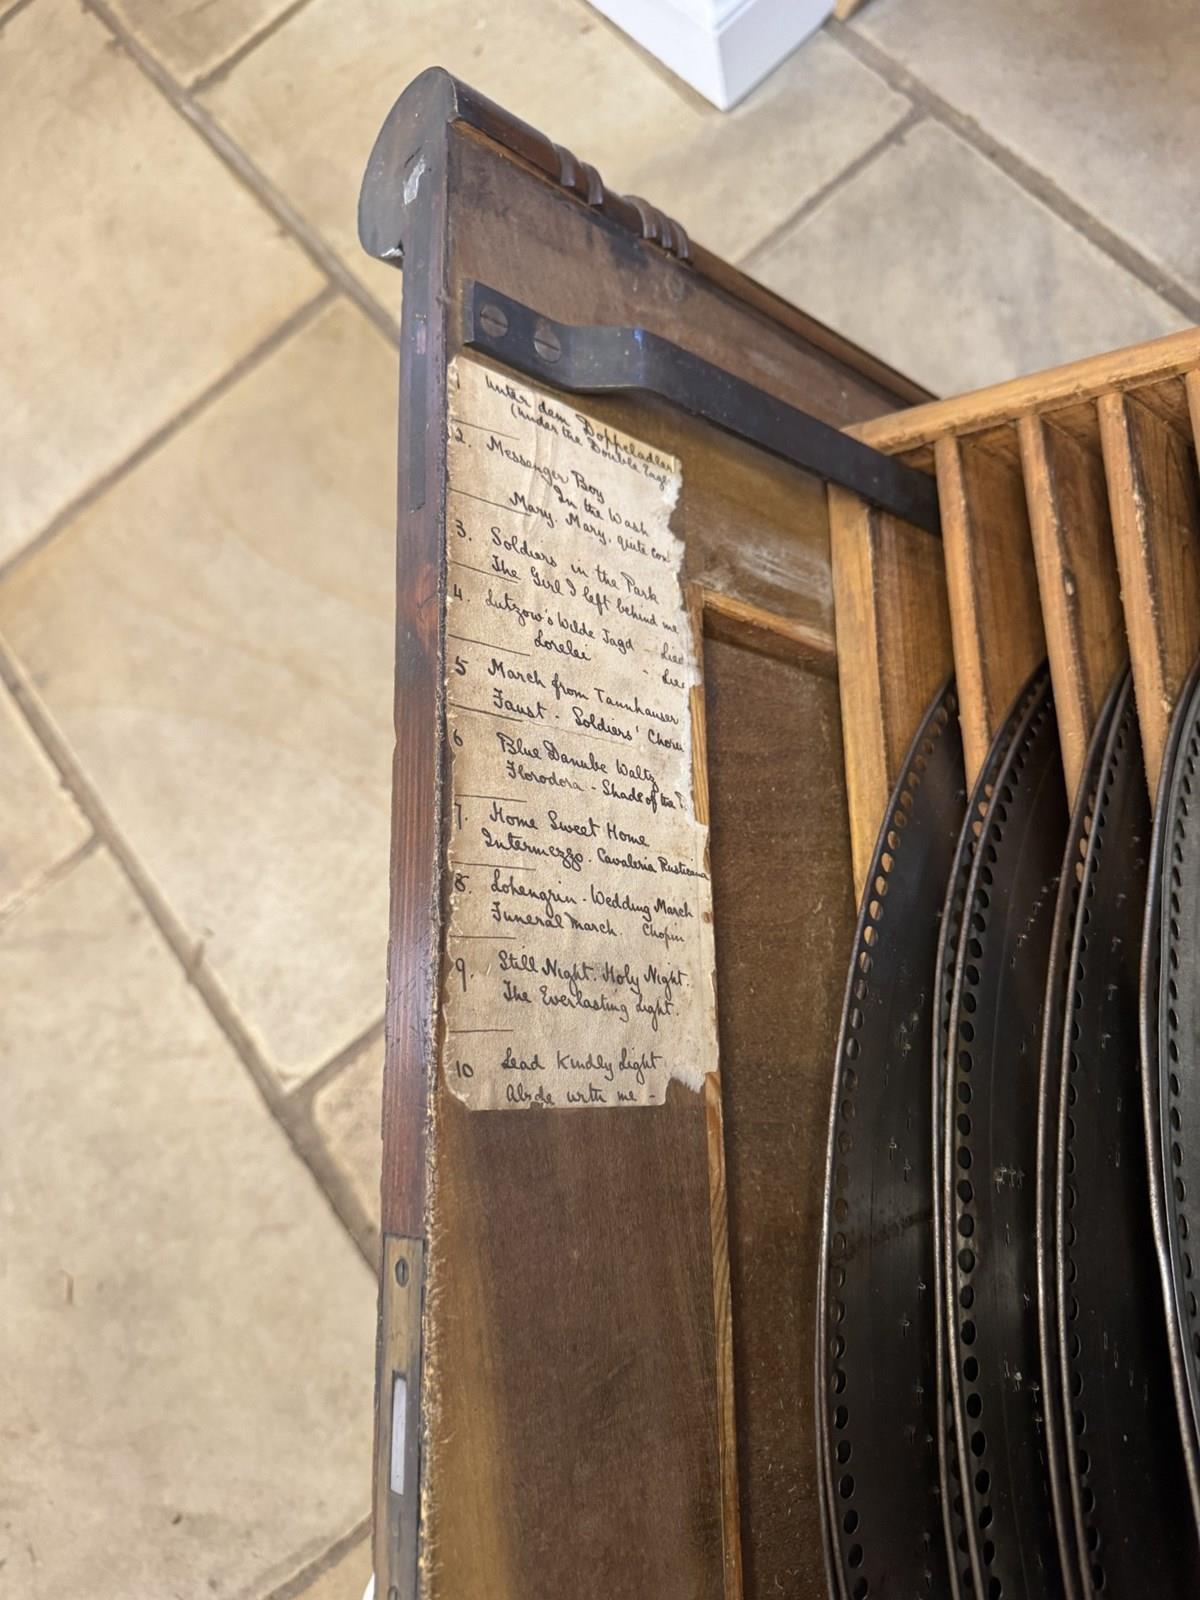 1 Unter dem Doppeladler
(Under the Double Eagl
2. Messenger Boy
In the Wash
Mary, Mary, quite con
3. Soldiers in the Park
The Girl I left behind me
4. Lutzow's Wilde Jagd - Lied
Lorelei - Lied
5 March from Tannhauser
Faust - Soldiers' Choru
6 Blue Danube Waltz
Florodora - Shade of the P
7. Home Sweet Home
Intermezzo. Cavaleria Rusticana
8. Lohengrin - Wedding March
Funeral March. Chopin
9. Still Night. Holy Night.
The Everlasting Light.
10 Lead Kindly Light
Abide with me -